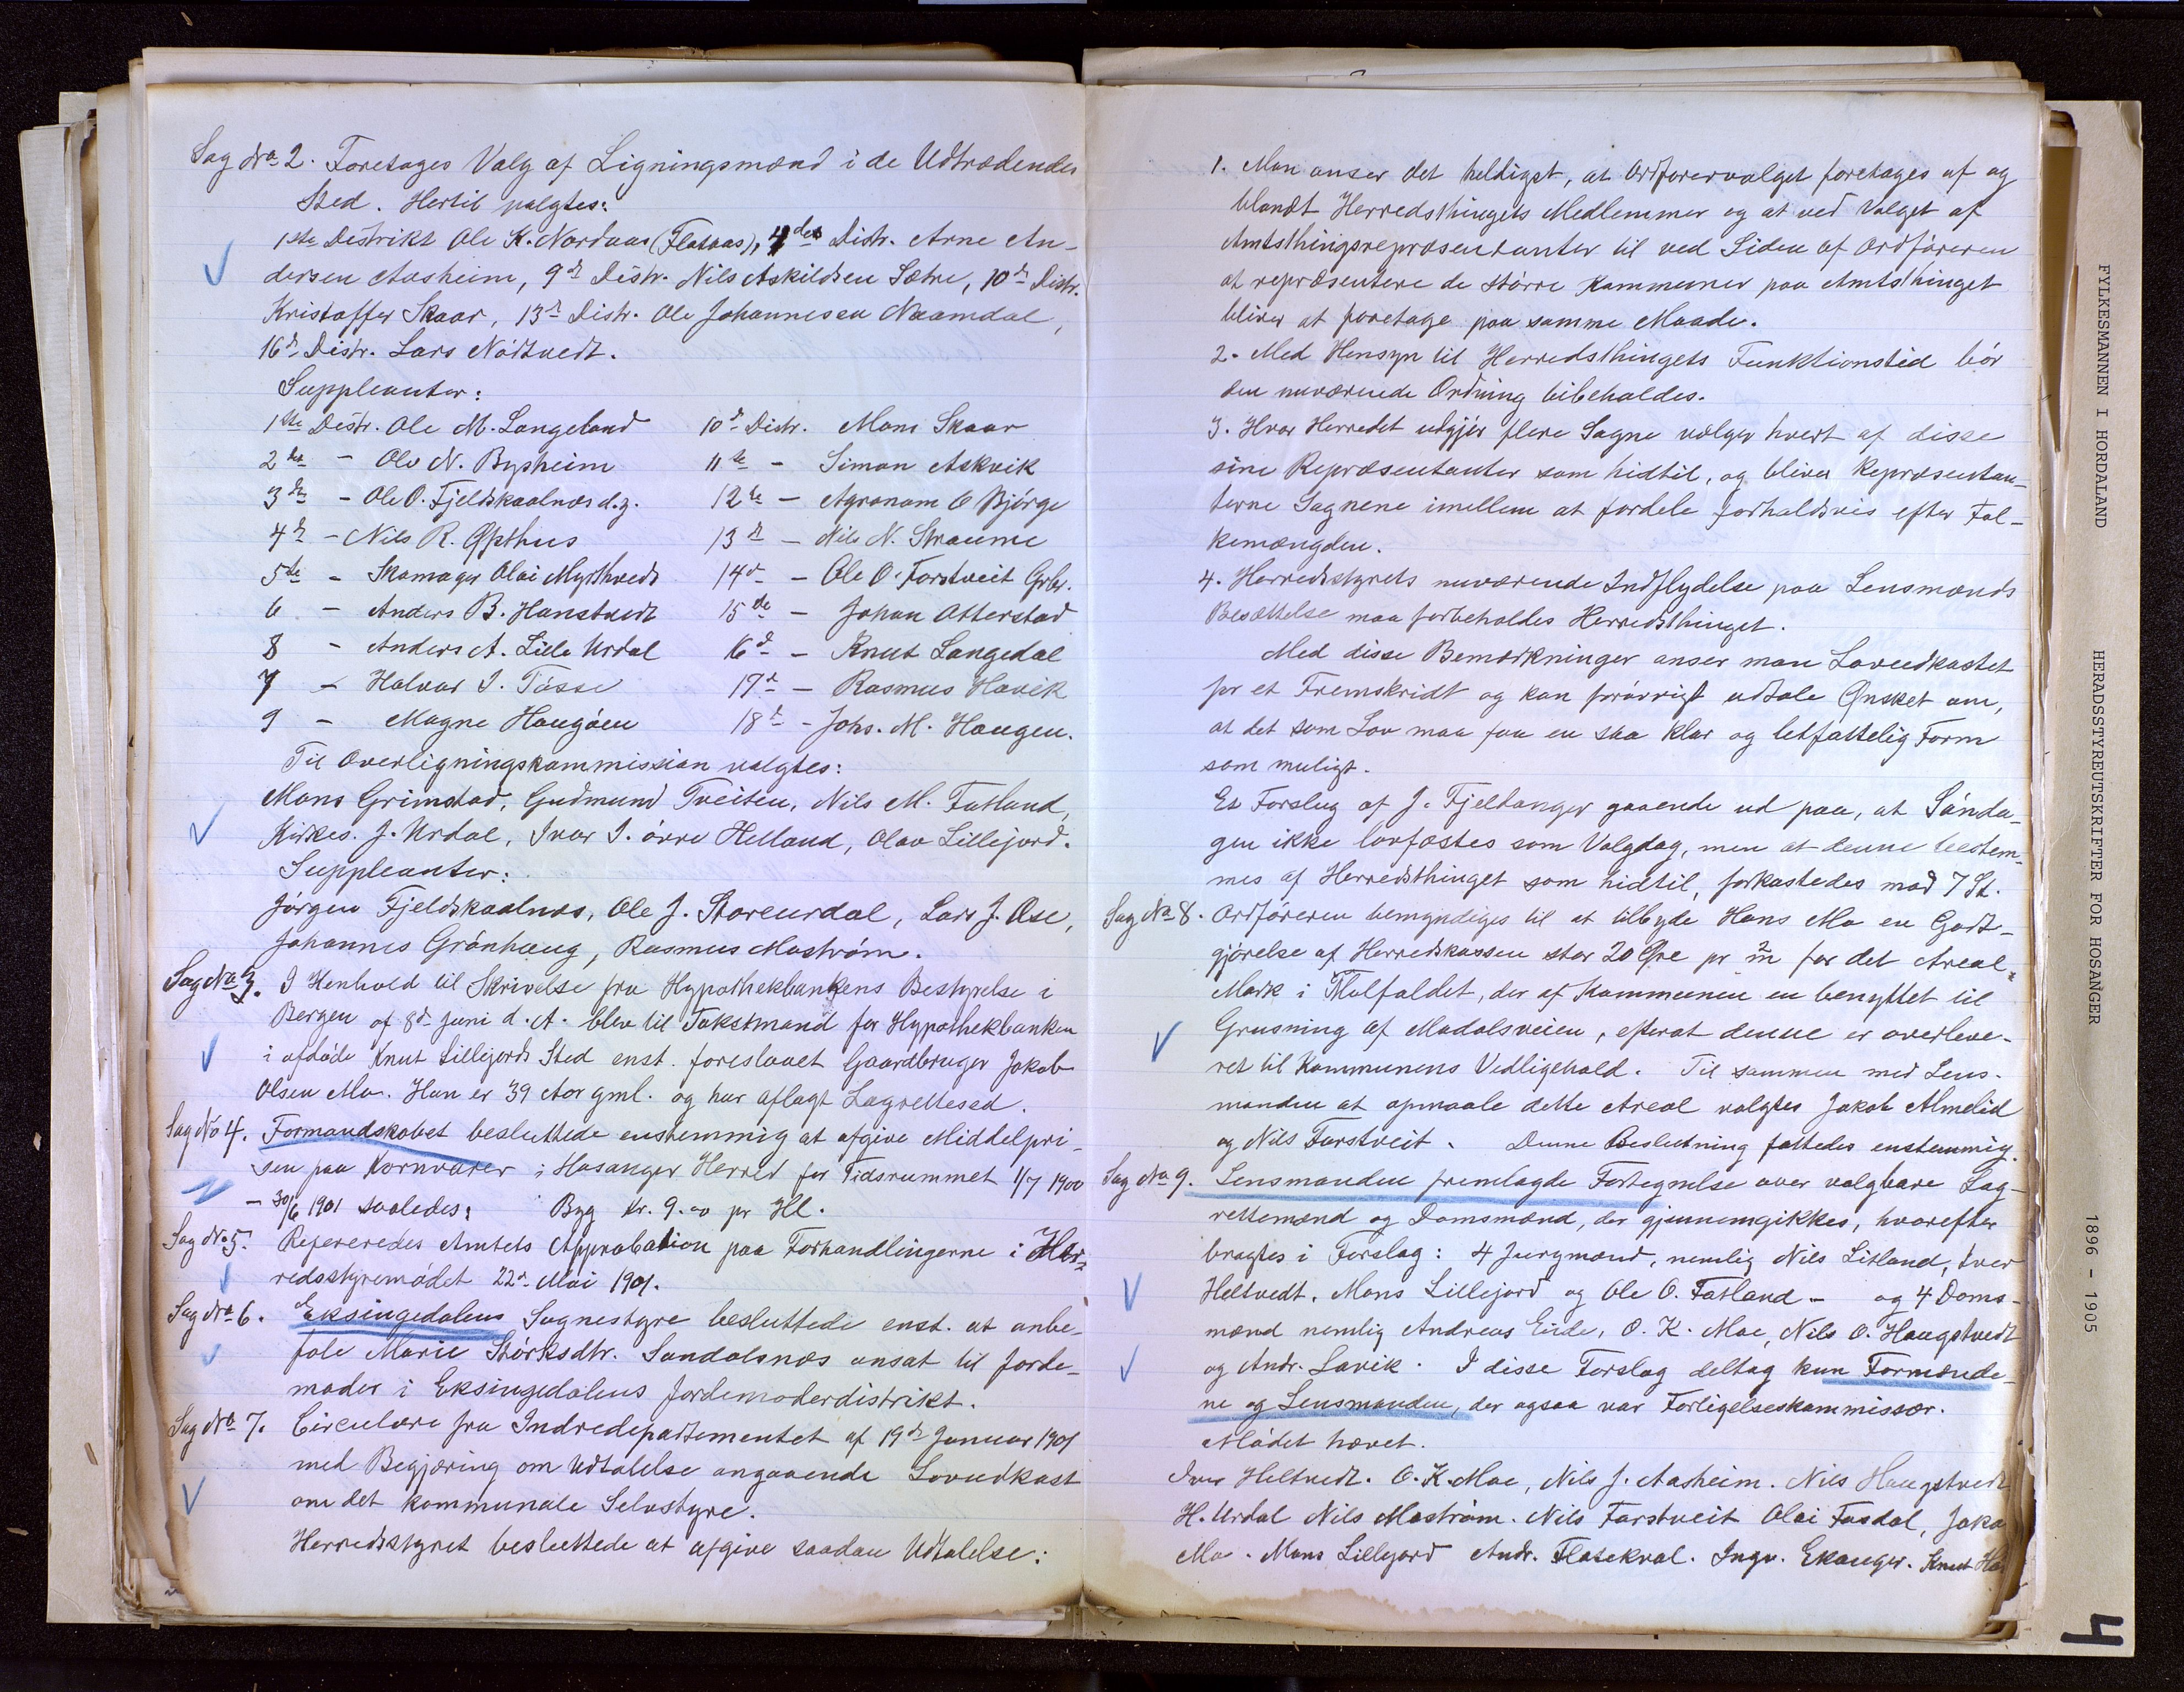 Sag No 2. Foretages Valg af Ligningsmænd i de Udtrædendes
Sted. Hertil valgtes:
1ste Distrikt Ole K. Nordaas (Flataas), 4des Distr. Arne An-
dersen Aasheim, 9de Distr. Nils Askildsen Sætre, 10de Distr.
Kristoffer Skaar, 13de Distr. Ole Johannesen Naamdal,
16de Distr. Lars Nödtvedt.
Suppleanter:
1ste Distr. Ole M. Langeland 10de Distr. Mons Skaar
2den - Ole N. Bysheim 11te - Simon Askvik
3die - Ole O. Fjeldskaalnæs d.y. 12te - Agronom O Bjørge
4de - Nils R. Opthus 13de - Nils N. Straume
5te - Skomager Olai Mysthvedt 14de - Ole O. Forstveit Grbr.
6 - Anders B. Hanstvedt 15de - Johan Otterstad
8 - Anders A. Lille Urdal 16de - Knut Langedal
7 - Halvor I. Tösse 17de - Rasmus Havik
9 - Magne Haugöen 18de - Johs. M. Haugen.
Til Overligningskommission valgtes:
Mons Grimstad, Gudmund Tveiten, Nils M. Fatland,
Kirkes. J. Urdal, Ivar I. övre Helland, Olav Lillejord.
Suppleanter:
Jörgen Fjeldskaalnæs, Ole J. Storeurdal, Lars J. Ase,
Johannes Grönhaug, Rasmus Mostrøm.
Sag No 3. I Henhold til Skrivelse fra Hypothekbankens Bestyrelse i
Bergen af 8de Juni d. A. blev til Takstmand for Hypothekbanken
i afdøde Knut Lillejords Sted enst. foreslaaet Gaardbruger Jakob
Olsen Mo. Han er 39 Aar gml. og har aflagt Lagretteed.
Sag No 4. Formandskabet besluttede enstemmig at afgive Middelpri-
sen paa Kornvarer i Hosanger Herred for Tidsrummet 1/7 1900
- 30/6 1901 saaledes: Byg Kr. 9.00 pr Hl.
Sag No 5. Refereredes Amtets Approbation paa Forhandlingerne i Her-
redsstyremödet 22de Mai 1901.
Sag No 6. Eksingedalens Sognestyre besluttede enst. at anbe-
fale Marie Störksdtr. Sandalsnæs ansat til Jorde-
moder i Eksingedalens Jordemoderdistrikt.
Sag No 7. Circulære fra Indredepartementet af 19de Januar 1901
med Begjæring om Udtalelse angaaende Lovudkast
om det kommunale Selvstyre.
Herredsstyret besluttede at afgive saadan Udtalelse:
1. Man anser det heldigst, at Ordførervalget foretages af og
blandt Herredsthingets Medlemmer og at ved Valget af
Amtsthingsrepræsentanter til ved Siden af Ordföreren
at repræsentere de större Kommuner paa Amtsthinget
bliver at foretage paa samme Maade.
2. Med Hensyn til Herredsthingets Funktionstid bör
den nuværende Ordning bibeholdes.
3. Hvor Herredet udgjör flere Sogne vælger hvert af disse
sine Repræsentanter som hidtil, og bliver Repræsentan-
terne Sognene imellem at fordele forholdsvis efter Fol-
kemængden.
4. Herredsstyrets nuværende Indflydelse paa Lensmands
Besættelse maa forbeholdes Herredsthinget.
Med disse Bemærkninger anser man Lovudkastet
for et Fremskridt og kan forövrigt udtale Ønsket om,
at det som Lov maa faa en saa klar og letfattelig Form
som muligt.
Et Forslag af J. Fjeldanger gaaende ud paa, at Sönda-
gen ikke lovfæstes som Valgdag, men at denne bestem-
mes af Herredsthinget som hidtil, forkastedes mod 7 St.
Sag No 8. Ordföreren bemyndiges til at tilbyde Hans Mo en Godt-
gjörelse af Herredskassen stor 20 Øre pr m² for det Areal
Mark i Tholfaldet, der af Kommunen en benyttet til
Grusning af Modalsveien, efterat denne er overleve-
ret til Kommunens Vedligehold. Til sammen med Lens-
manden at opmaale dette Areal valgtes Jakob Almelid
og Nils Farstveit. Denne Beslutning fattedes enstemmig.
Sag No 9. Lensmanden fremlagde Fortegnelse over valgbare Lag-
rettemænd og Domsmænd, der gjennemgikkes, hvorefter
bragtes i Forslag: 4 Jurymænd, nemlig Nils Litland, Iver
Heltvedt, Mons Lillejord og Ole O. Fatland - og 4 Doms-
mænd nemlig Andreas Eide, O. K. Moe, Nils O. Haugstvedt
og Andr. Lavik. I disse Forslag deltog kun Formænde-
ne og Lensmanden, der ogsaa var Forligelseskommissær.
Mödet hævet.
Iver Heltvedt. O. K. Moe, Nils J. Aasheim. Nils Haugstvedt
H. Urdal Nils Mostrøm. Nils Farstveit Olai Fosdal, Jakob
Mo. Mons Lillejord Andr. Flatekval. Ingv. Ekanger. Knut
FYLKESMANNEN I HORDALAND HERADSSTYREUTSKRIFTER FOR HOSANGER 1896 - 1905
4